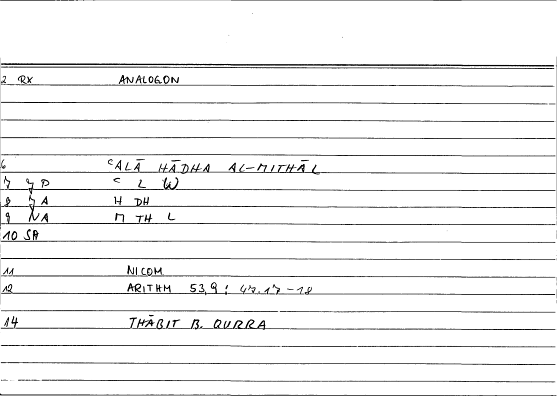 2 RX ANALOGON
6 ʿALĀ HĀDHA AL-MITHĀL
7 JP ʿ L W
8 JA H DH
9 NA M TH L
10 SA
11 NICOM
12 ARITHM 53,9: 47.17-18
14 THĀBIT B. QURRA